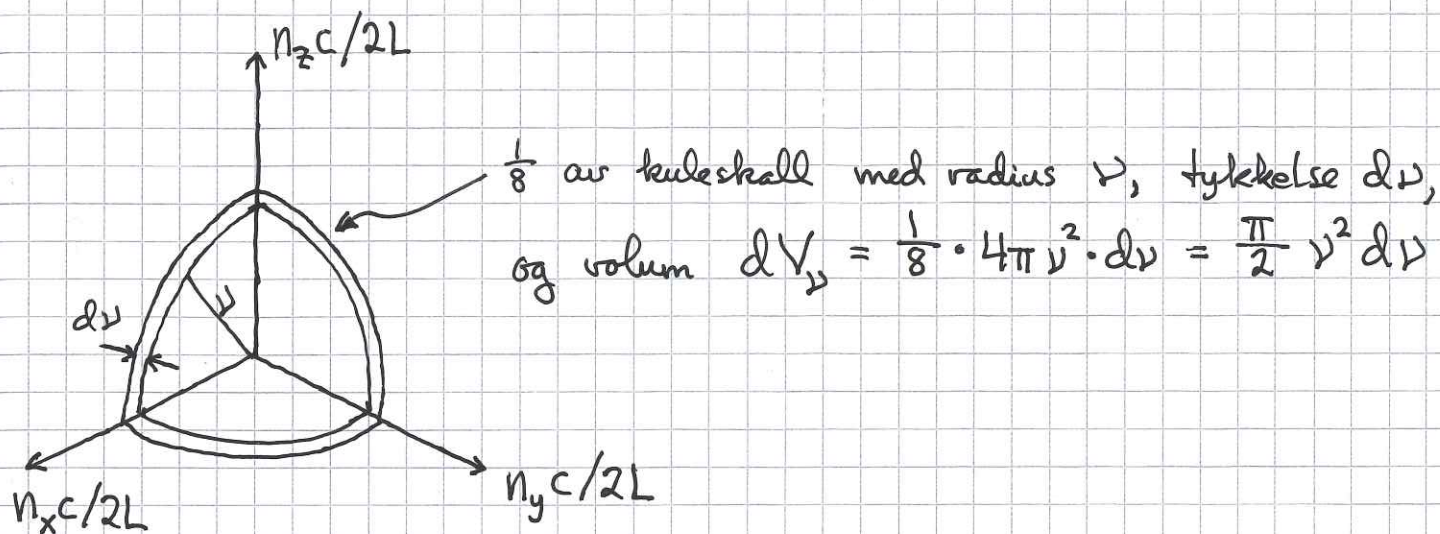 n_z c/2L
1/8 av kuleskall med radius ν, tykkelse dν,
og volum dV_ν = 1/8 · 4πν² · dν = π/2 ν² dν
dν
ν
n_x c/2L
n_y c/2L